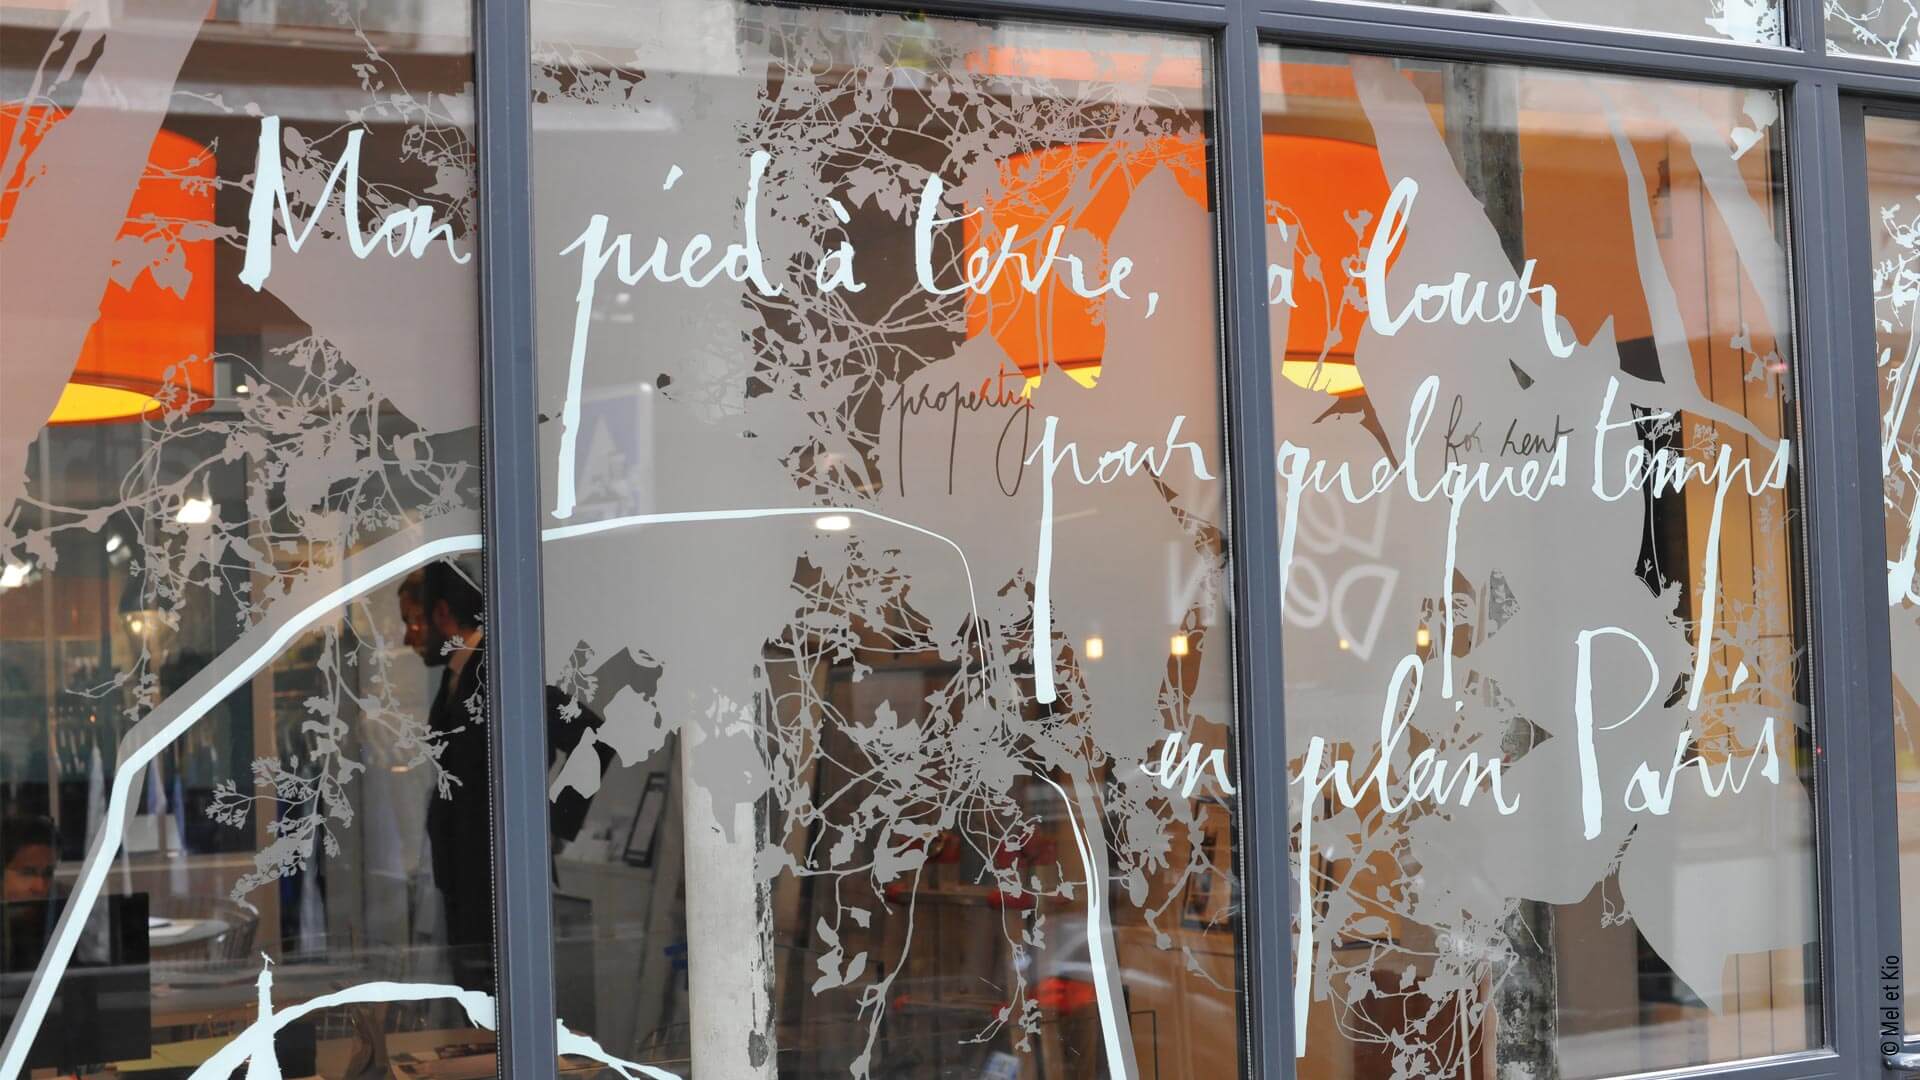 Mon pied à terre, à louer
property for rent
pour quelques temps
en plein Paris
© Mel et Kio